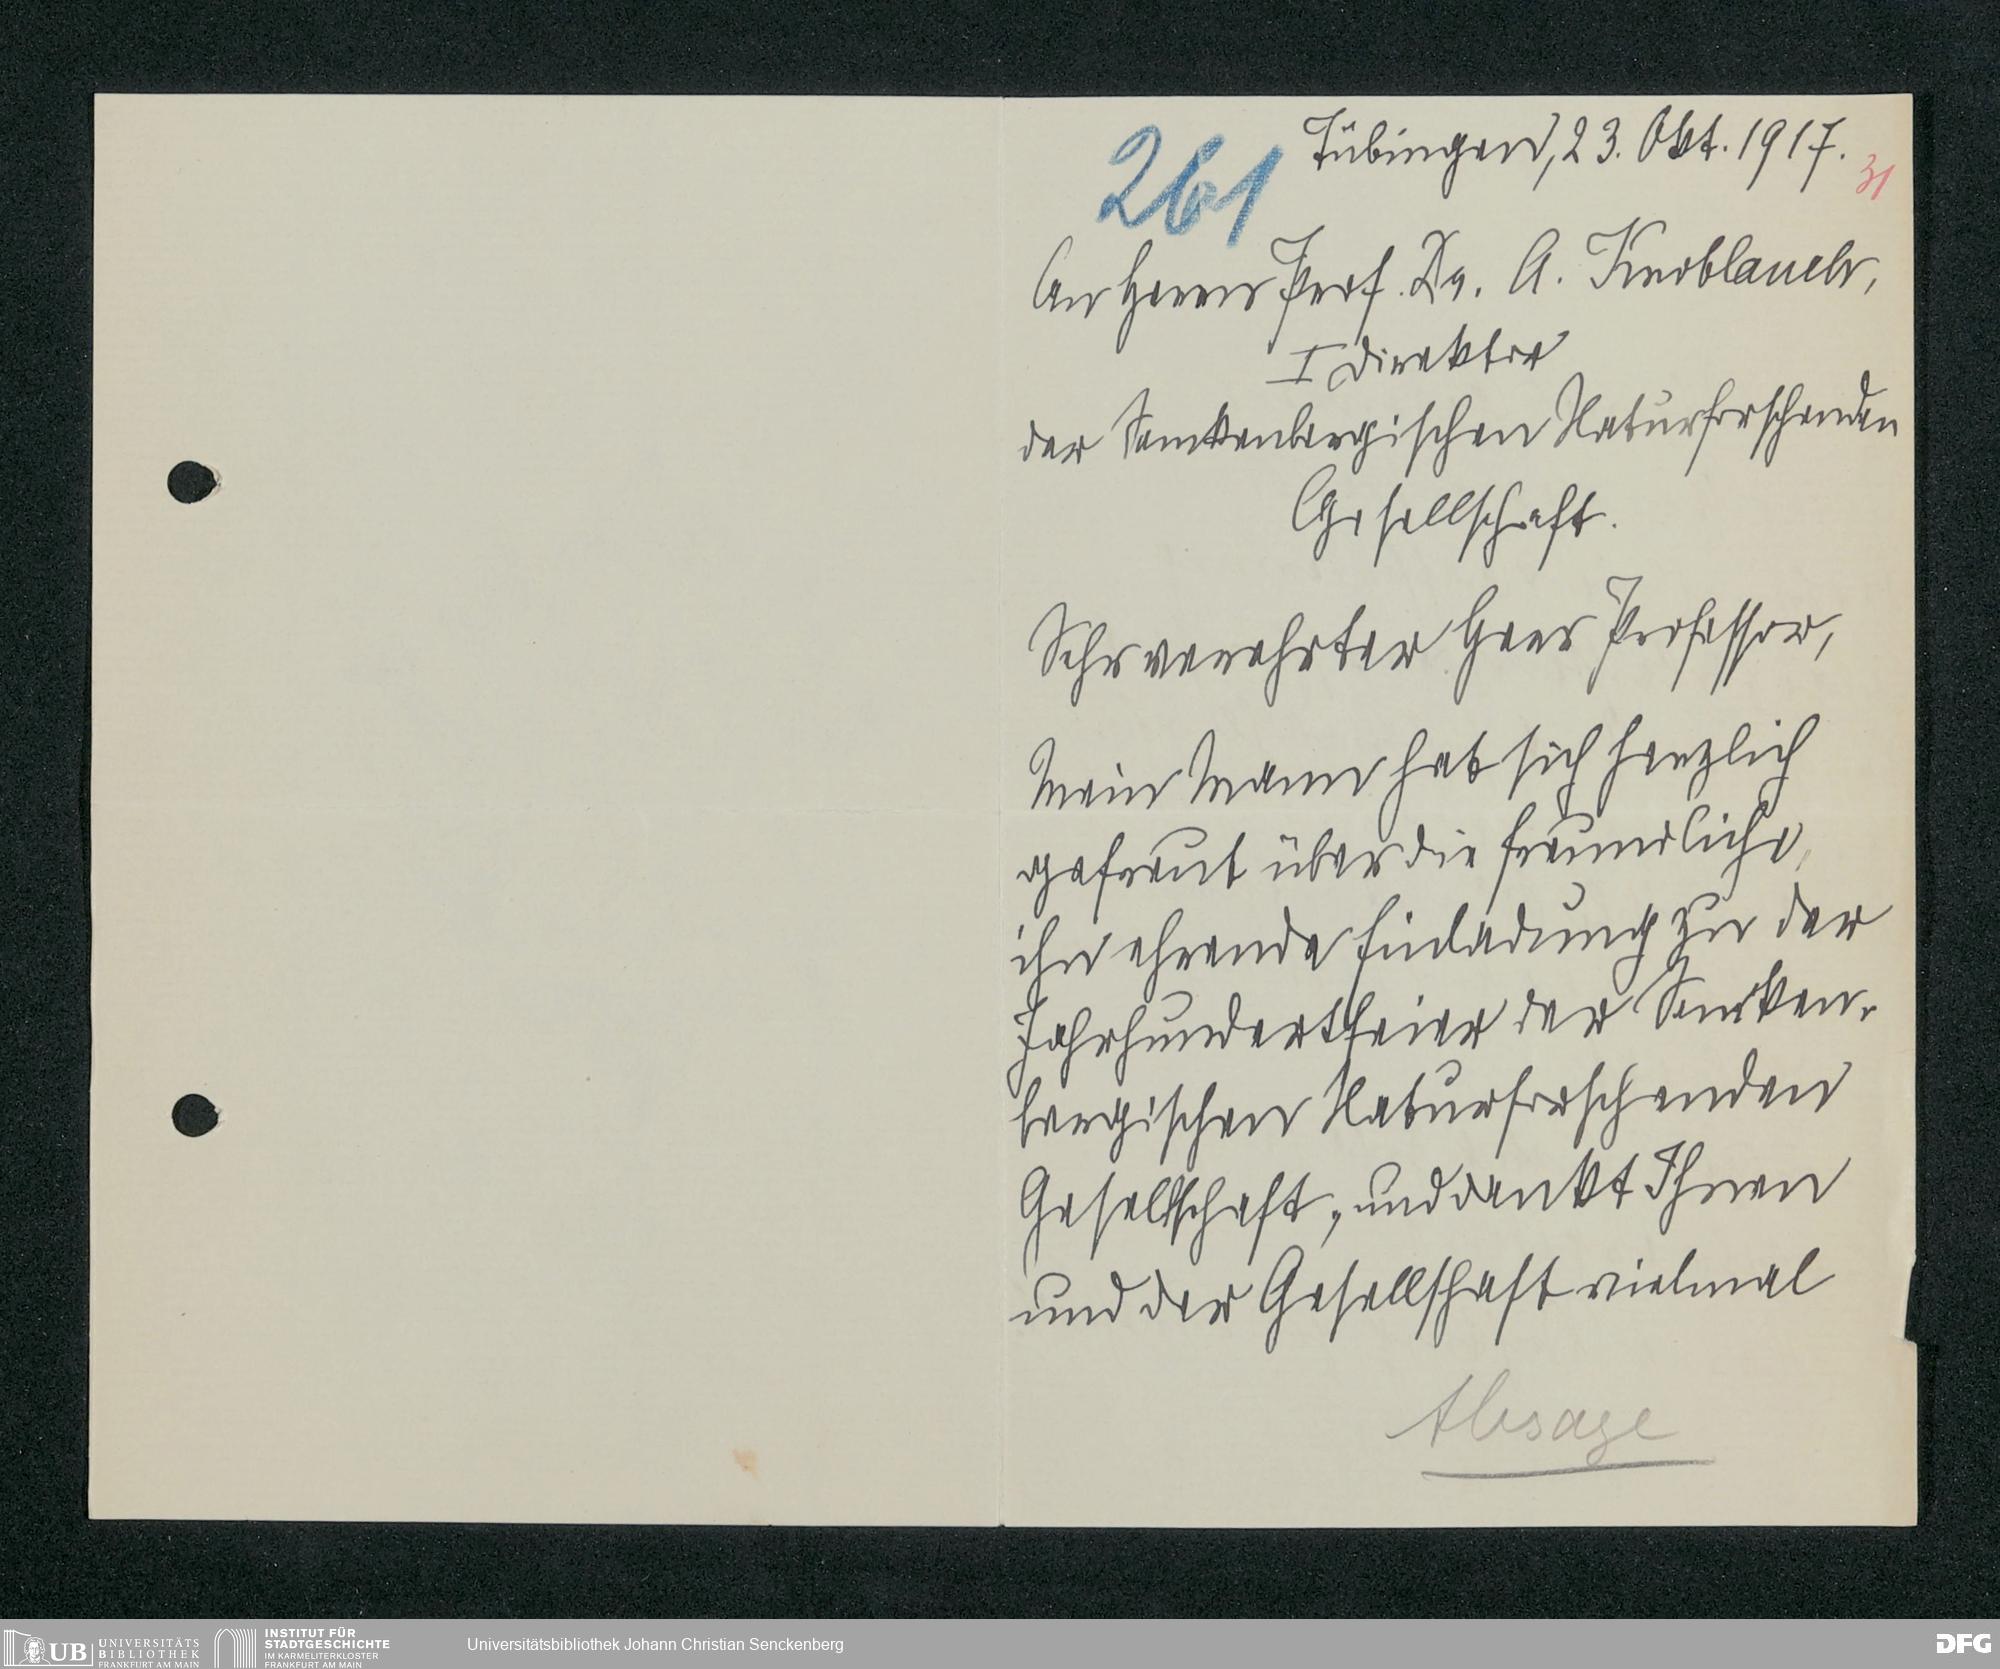 261
Tübingen, 23. Okt. 1917.
31
An Herrn Prof. Dr. A. Knoblauch,
I Direktor
der Senckenbergischen Naturforschenden
Gesellschaft.
Sehr verehrter Herr Professor,
Mein Mann hat sich herzlich
gefreut über die freundliche,
ihn ehrende Einladung zu der
Jahrhundertfeier der Sencken-
bergischen Naturforschenden
Gesellschaft, und dankt Ihnen
und der Gesellschaft vielmal
Absage
UB UNIVERSITÄTS
BIBLIOTHEK
FRANKFURT AM MAIN
INSTITUT FÜR
STADTGESCHICHTE
IM KARMELITERKLOSTER
FRANKFURT AM MAIN
Universitätsbibliothek Johann Christian Senckenberg
DFG